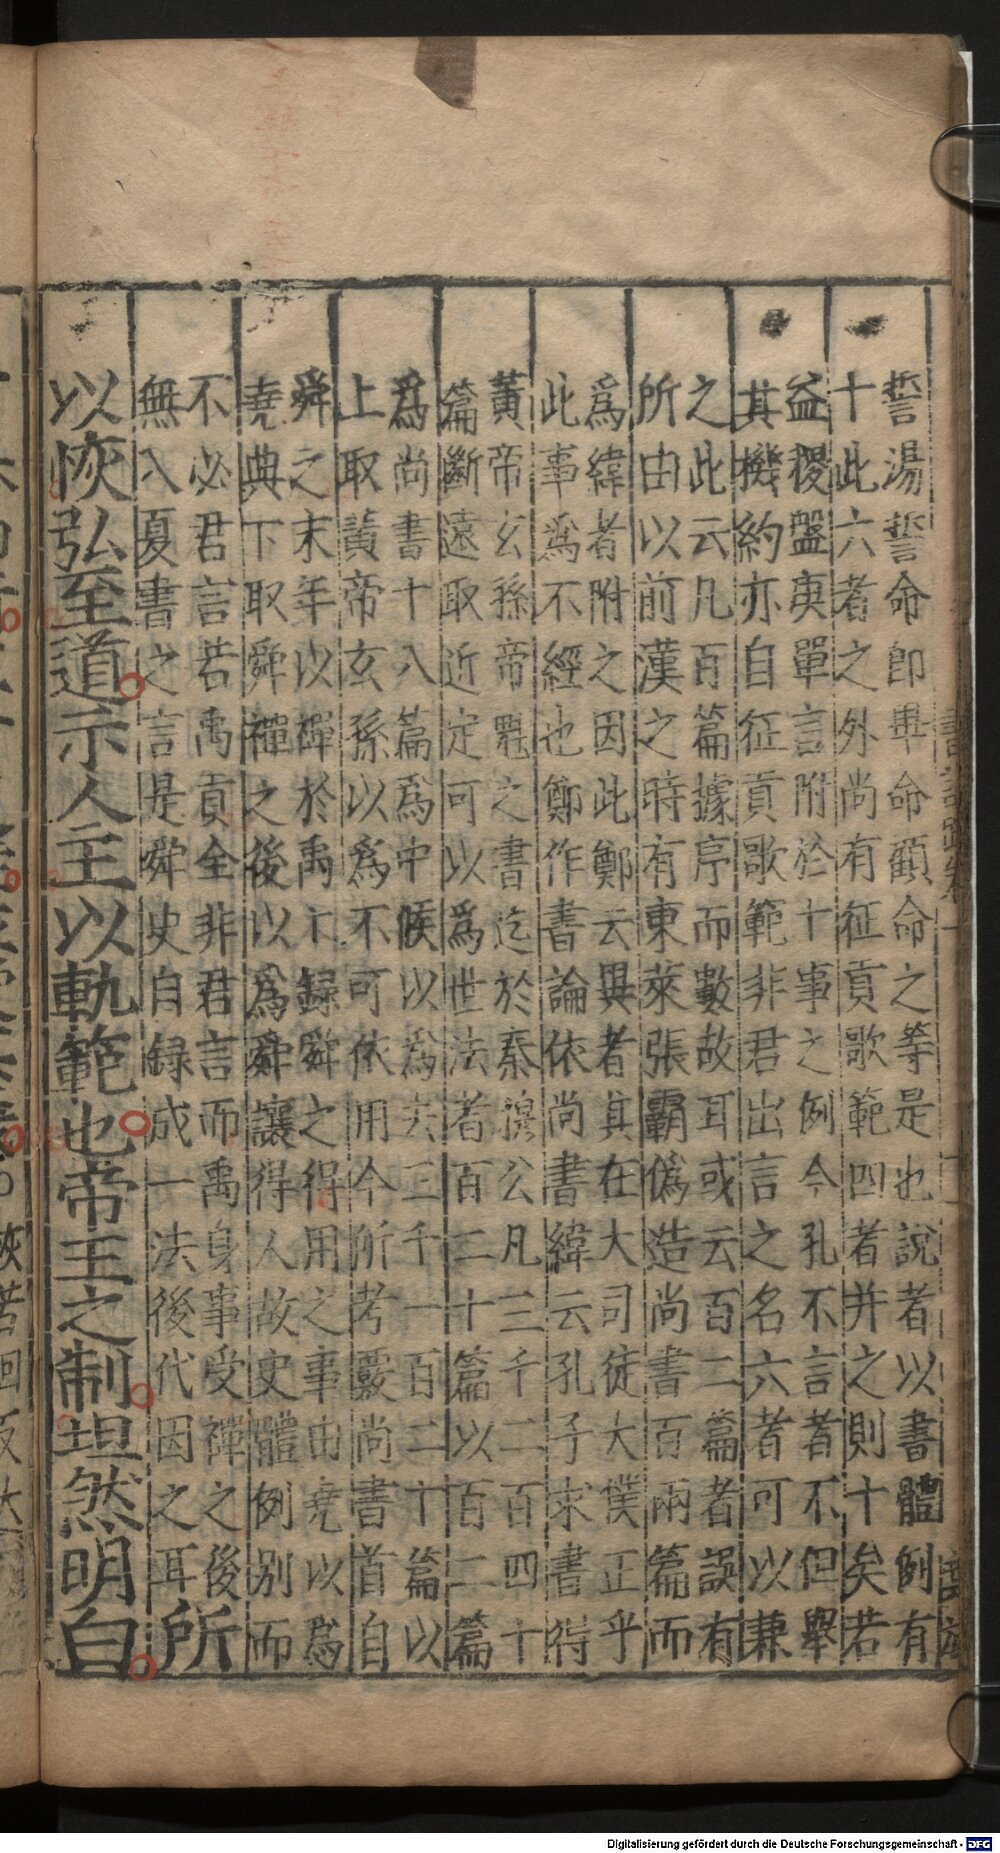 誓湯誓命即畢命顧命之等是也說者以書體例有
十此六者之外尚有征貢歌範四者并之則十矣若
益稷盤庚單言附於十事之例今孔不言者不但舉
其機約亦自征貢歌範非君出言之名六者可以兼
之此云凡百篇據序而數故耳或云百二篇者誤有
所由以前漢之時有東萊張霸偽造尚書百兩篇而
為緯者附之因此鄭云異者其在大司徒大僕正乎
此事為不經也鄭作書論依尚書緯云孔子求書得
黃帝玄孫帝魁之書迄於秦穆公凡三千二百四十
篇斷遠取近定可以為世法者百二十篇以百二篇
為尚書十八篇為中候以為去三千一百二十篇以
上取黃帝玄孫以為不可依用今所考覈尚書首自
舜之末年以禪於禹上錄舜之得用之事由堯以為
堯典下取舜禪之後以為舜讓得人故史體例別而
不必君言若禹貢全非君言而禹身事受禪之後
無入夏書之言是舜史自録成一法後代因之耳
所
以恢弘至道示人主以軌範也帝王之制坦然明白
Digitalisierung gefördert durch die Deutsche Forschungsgemeinschaft - DFG